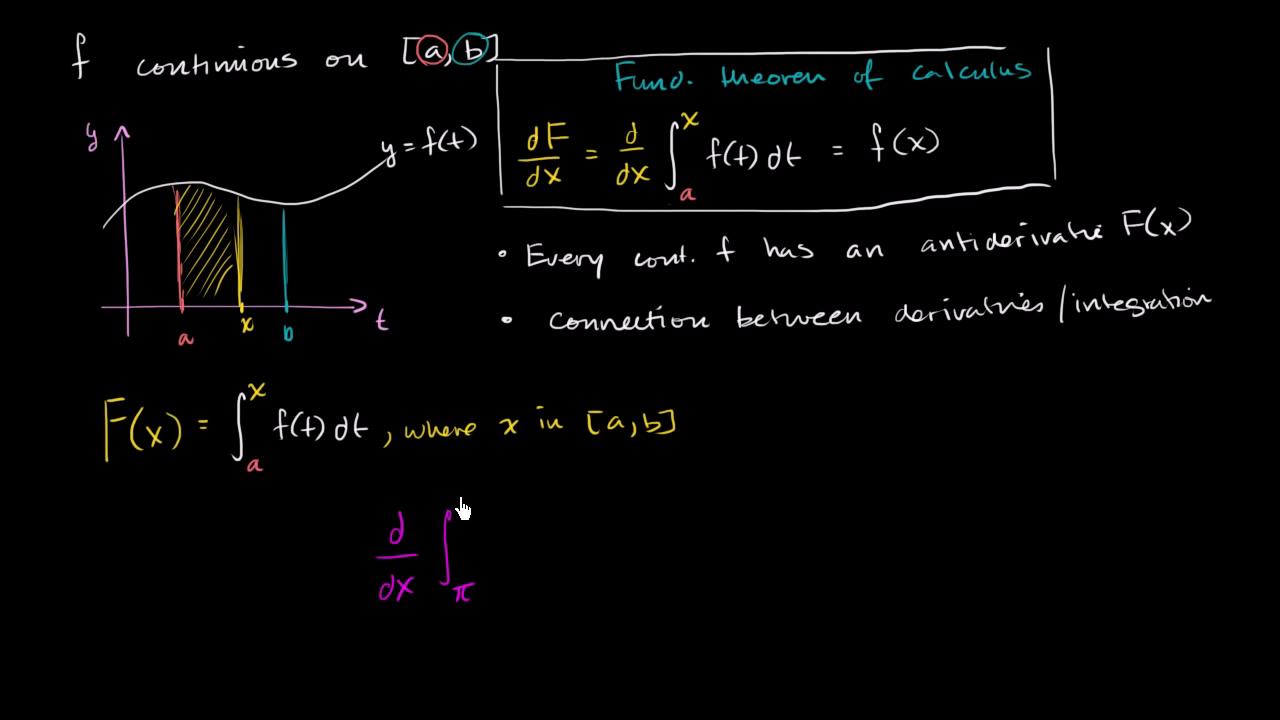 f continuous on [a, b]
Fund. theorem of calculus
dF/dx = d/dx ∫_a^x f(t) dt = f(x)
y
y = f(t)
a x b t
• Every cont. f has an antiderivative F(x)
• connection between derivatives/integration
F(x) = ∫_a^x f(t) dt, where x in [a, b]
d/dx ∫_π